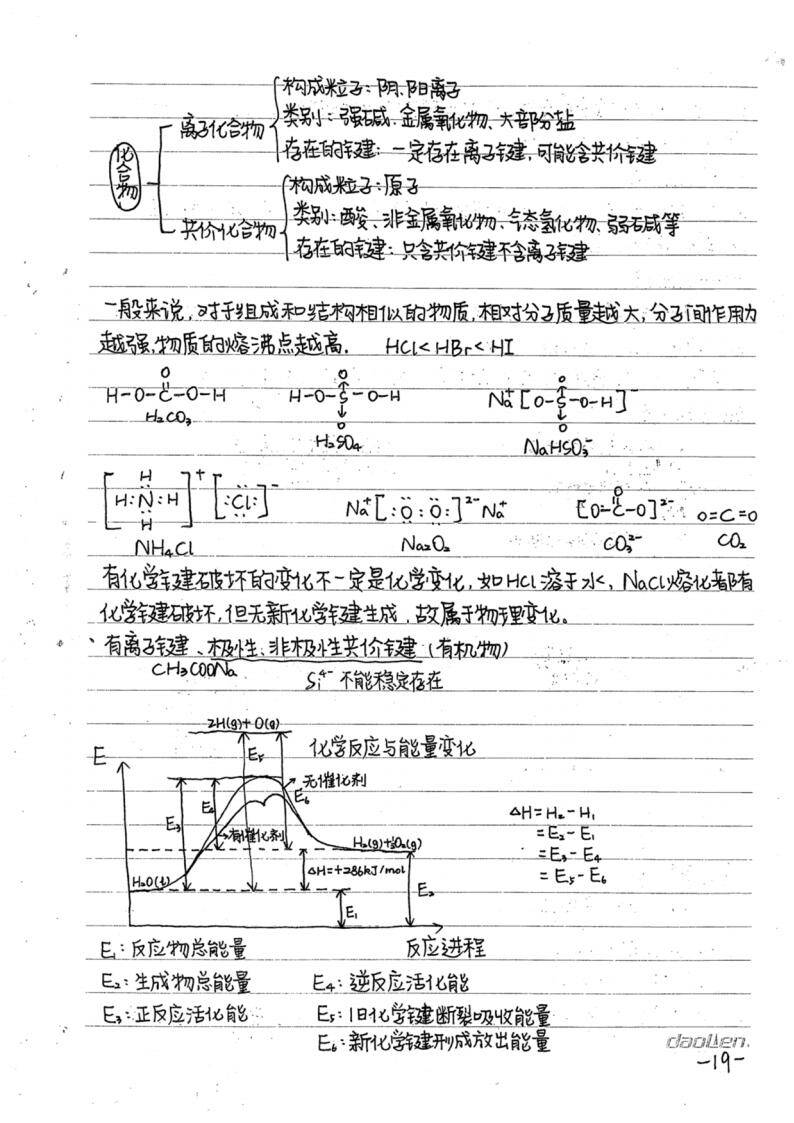 构成粒子：阴、阳离子
离子化合物 类别：强碱、金属氧化物、大部分盐
存在的键：一定存在离子键，可能含共价键
化合物
构成粒子：原子
共价化合物 类别：酸、非金属氧化物、气态氢化物、弱碱等
存在的键：只含共价键不含离子键
一般来说，对于组成和结构相似的物质，相对分子质量越大，分子间作用力
越强，物质的熔沸点越高. HCl<HBr<HI
O O O
H-O-C-O-H H-O-S-O-H Na⁺[O-S-O-H]⁻
H₂CO₃ O O
H₂SO₄ NaHSO₃⁻
H
[H:N:H]⁺[:Cl:]⁻ Na⁺[:O:O:]²⁻Na⁺ [O-C-O]²⁻ O=C=O
H O
NH₄Cl Na₂O₂ CO₃²⁻ CO₂
有化学键破坏的变化不一定是化学变化，如HCl溶于水，NaCl熔化都有
化学键破坏，但无新化学键生成，故属于物理变化。
、有离子键、极性、非极性共价键（有机物）
CH₃COONa
Si⁴⁻ 不能稳定存在
2H(g)+O(g)
E E₅ 化学反应与能量变化
无催化剂
E₃ E₄ E₆
有催化剂
H₂(g)+½O₂(g)
H₂O(l) ΔH=+286kJ/mol
E₁ E₂
ΔH=H₂-H₁
=E₂-E₁
=E₃-E₄
=E₅-E₆
E₁：反应物总能量 反应进程
E₂：生成物总能量 E₄：逆反应活化能
E₃：正反应活化能 E₅：旧化学键断裂吸收能量
E₆：新化学键形成放出能量
daolien.
-19-